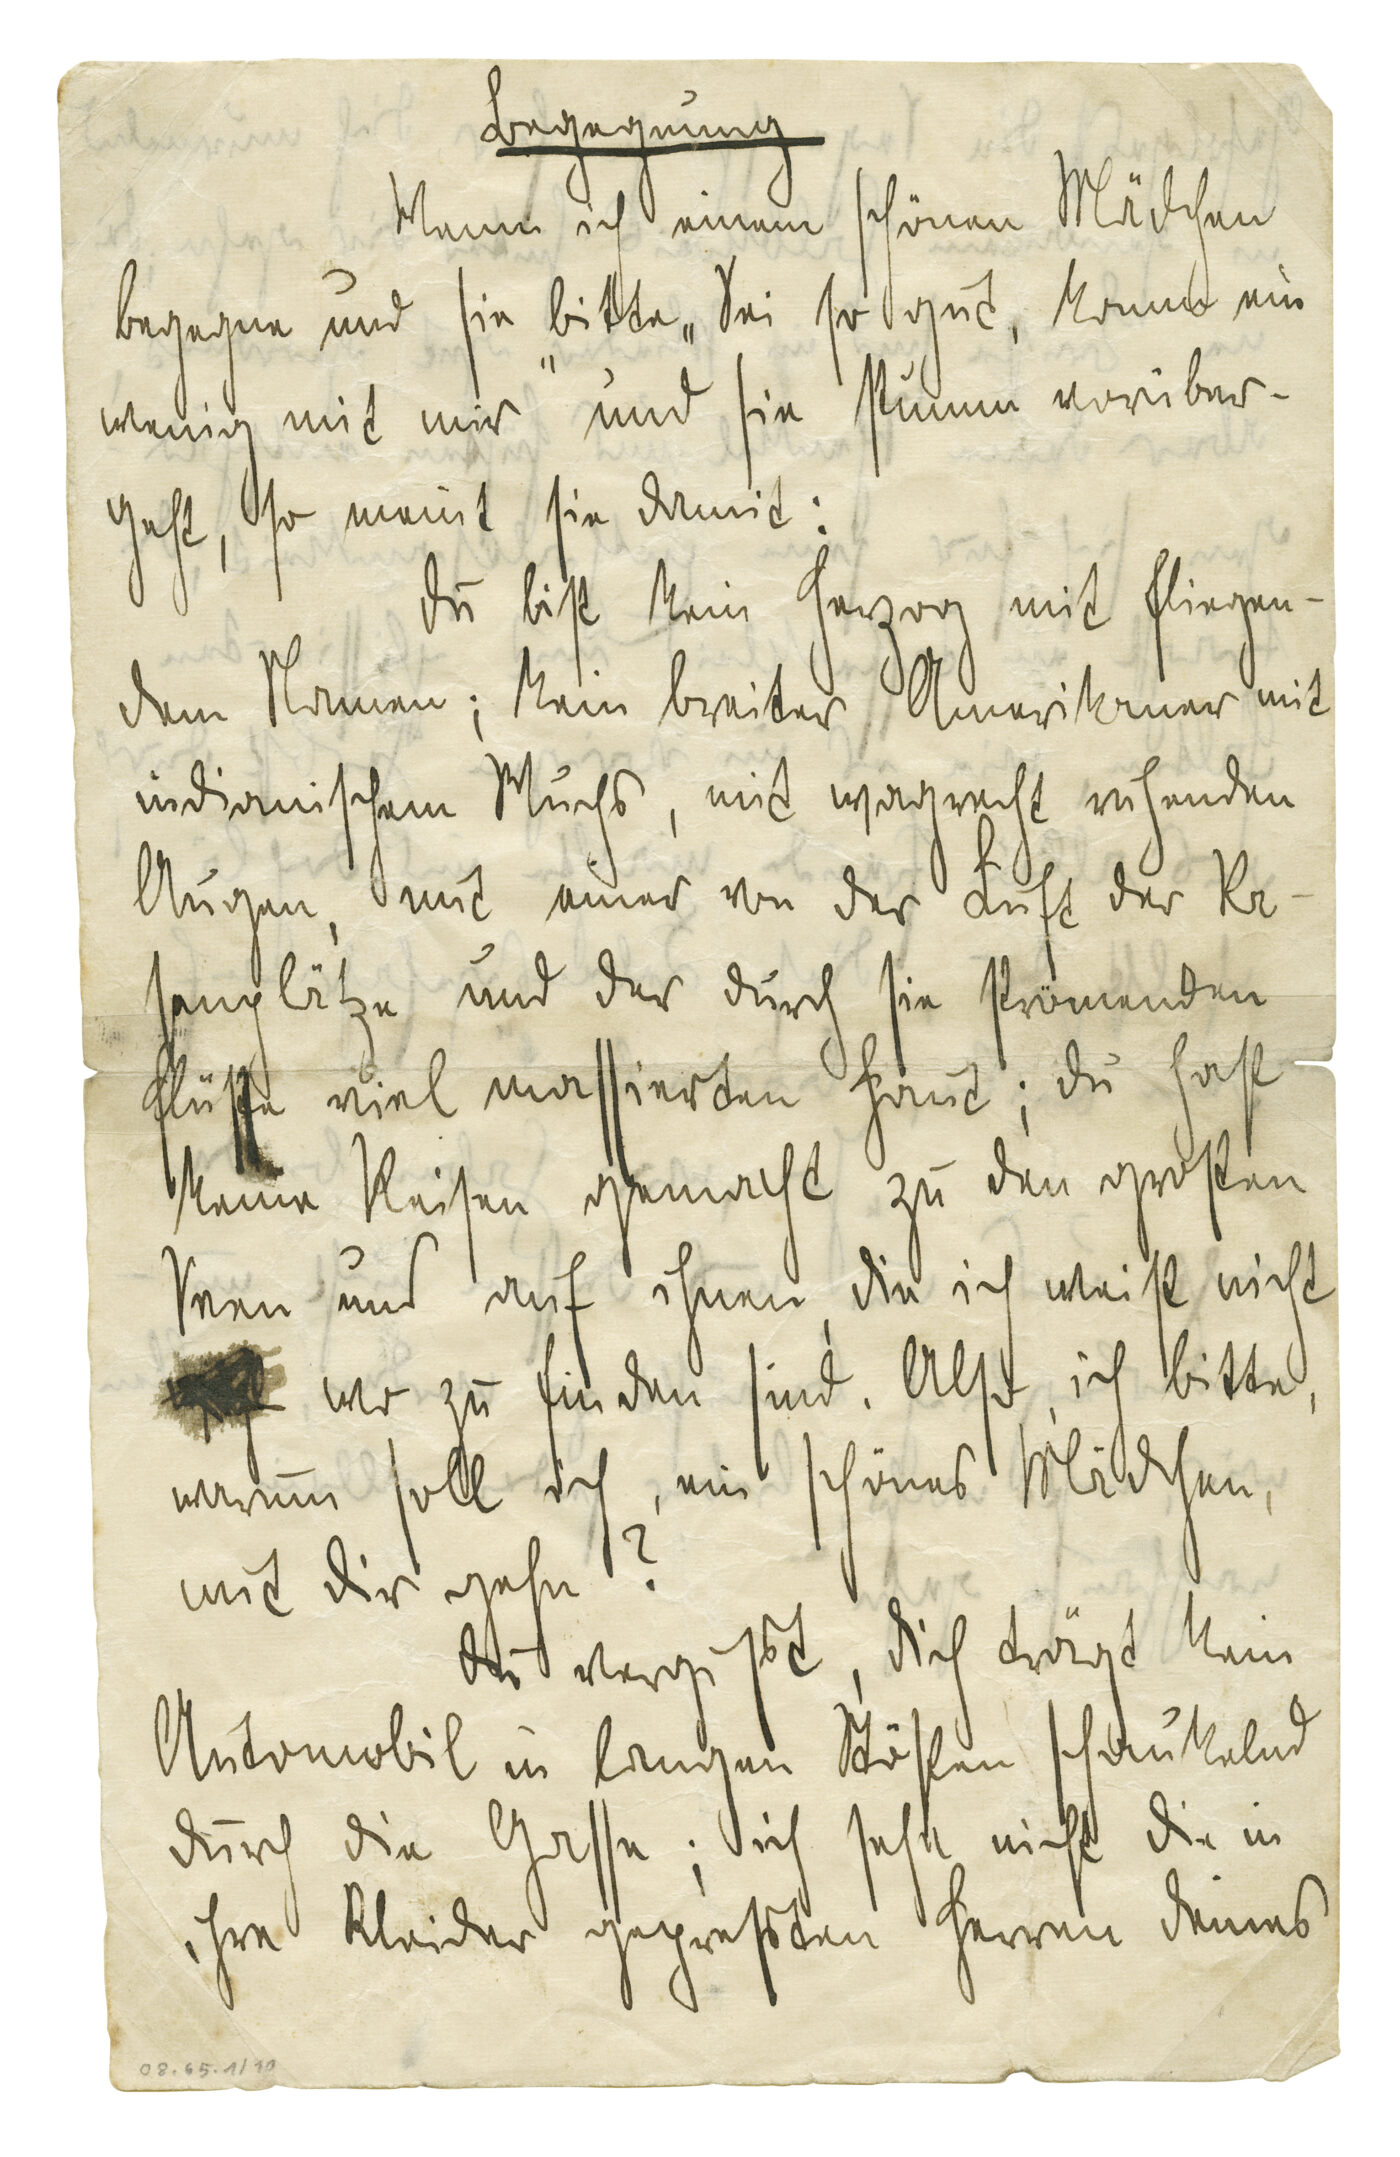 Begegnung
Wenn ich einem schönen Mädchen
begegne und sie bitte „Sei so gut, komm ein
wenig mit mir" und sie stumm vorüber-
geht, so meint sie damit:
Du bist kein Herzog mit fliegen-
dem Namen; kein breiter Amerikaner mit
indianischem Wuchs, mit wagrecht ruhenden
Augen, mit einer von der Luft der Ra-
senplätze und der durch sie strömenden
Flüße viel massierten Haut; du hast
keine Reisen gemacht zu den großen
Seen und auf ihnen, die ich weiß nicht
wo zu finden sind. Also, ich bitte,
warum soll ich, ein schönes Mädchen,
mit dir gehn?
Du vergißt, dich trägt kein
Automobil in langen Stößen schaukelnd
durch die Gasse; ich sehe nicht die in
ihre Kleider gepreßten Herren deines
08.65.1/10